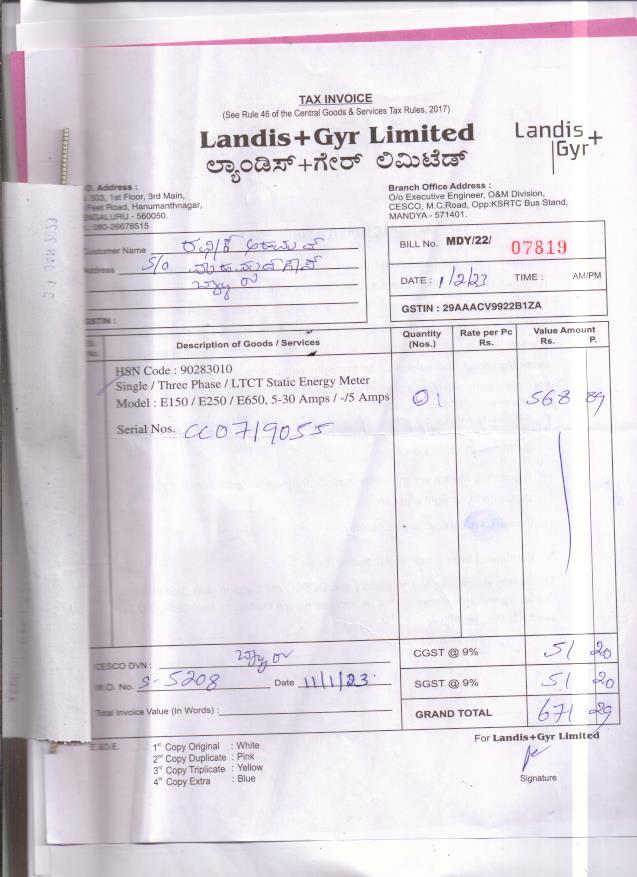 TAX INVOICE
(See Rule 46 of the Central Goods & Services Tax Rules, 2017)
Landis+Gyr Limited
ಲ್ಯಾಂಡಿಸ್+ಗೇರ್ ಲಿಮಿಟೆಡ್
Landis+
Gyr
Address :
503, 1st Floor, 3rd Main,
Feet Road, Hanumanthnagar,
- 560050.
080-26678515
Branch Office Address :
O/o Executive Engineer, O&M Division,
CESCO, M.C.Road, Opp:KSRTC Bus Stand,
MANDYA - 571401.
21 JAN 2023
Customer Name
Address S/o
GSTIN :
BILL No. MDY/22/ 07819
DATE : 1/2/23 TIME : AM/PM
GSTIN : 29AAACV9922B1ZA
Sl. No. Description of Goods / Services Quantity (Nos.) Rate per Pc Rs. Value Amount Rs. P.
HSN Code : 90283010
Single / Three Phase / LTCT Static Energy Meter
Model : E150 / E250 / E650, 5-30 Amps / -/5 Amps 01 568 89
Serial Nos. CC0719055
CESCO DVN :
CGST @ 9% 51 20
W.O. No. S-5208 Date 11/1/23
SGST @ 9% 51 20
Total Invoice Value (In Words) :
GRAND TOTAL 671 29
E.&O.E.
For Landis+Gyr Limited
1st Copy Original : White
2nd Copy Duplicate : Pink
3rd Copy Triplicate : Yellow
4th Copy Extra : Blue
Signature